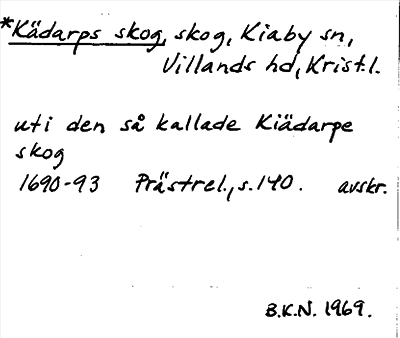 *Kädarps skog, skog, Kiaby sn,
Villands hd, Krist.l.
uti den så kallade Kiädarpe
skog
1690-93 Prästrel., s. 140. avskr.
B.K.N. 1969.